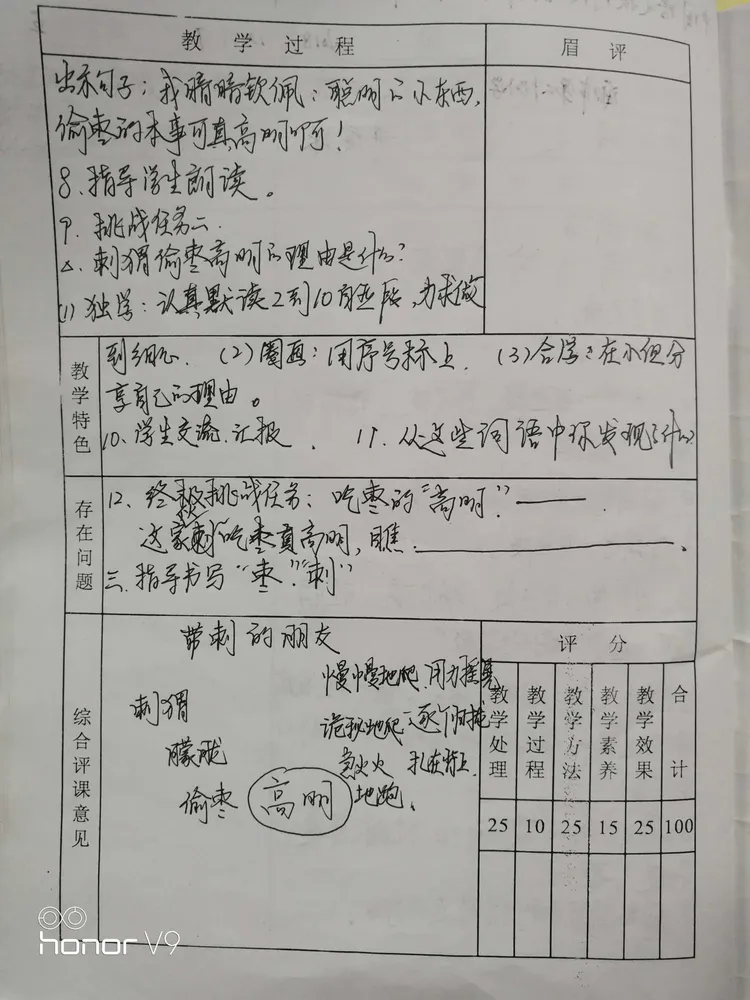 教学过程 眉评
出示句子：我暗暗钦佩：聪明的小东西，
偷枣的本事可真高明啊！
8、指导学生朗读。
9、挑战任务二、
△、刺猬偷枣高明的理由是什么？
(1) 独学：认真默读2到10自然段，力求做
教学特色
到细心、(2)圈画：用序号标上、(3)合学：在小组分
享自己的理由。
10、学生交流、汇报、11、从这些词语中你发现了什么？
存在问题
12、终极挑战任务：吃枣的“高明”——
这家刺 吃枣真高明，瞧：
三、指导书写“枣”“刺”
综合评课意见
带刺的朋友
刺猬 慢慢地爬 用力摇晃
朦胧 诡秘地爬 逐个归拢
急火火 扎在背上
偷枣 高明 地跑、
评分
教学处理 教学过程 教学方法 教学素养 教学效果 合计
25 10 25 15 25 100
honor V9